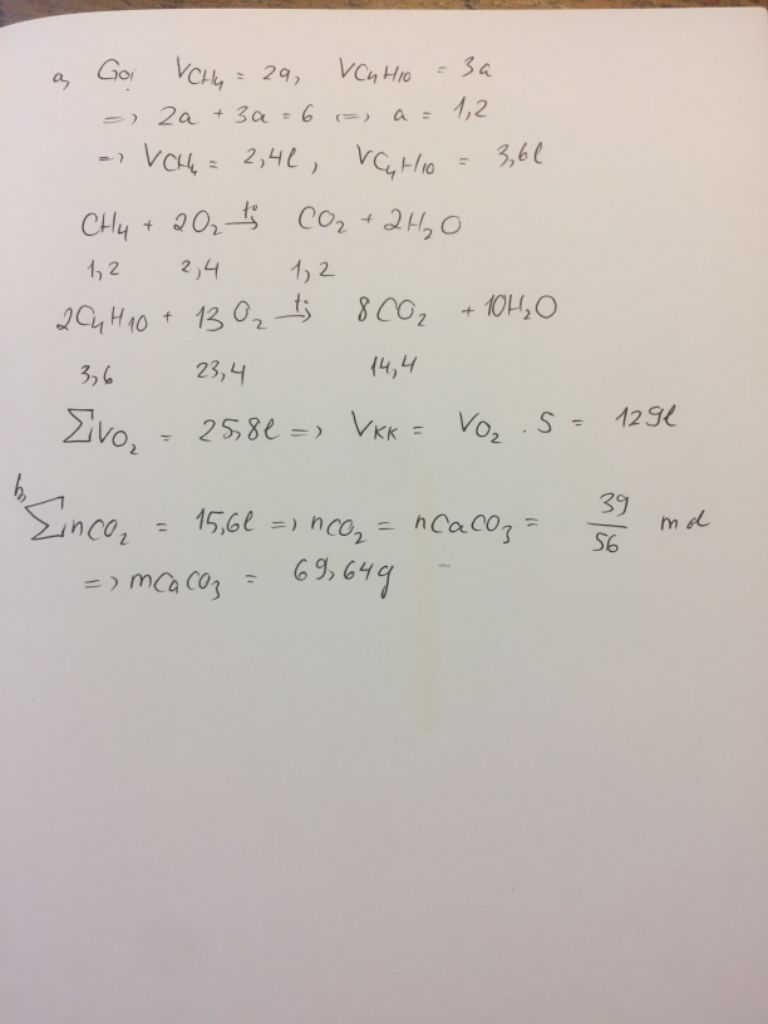 a, Gọi VCH4 = 2a, VC4H10 = 3a
=> 2a + 3a = 6 <=> a = 1,2
=> VCH4 = 2,4l, VC4H10 = 3,6l
CH4 + 2O2 -t°-> CO2 + 2H2O
1,2 2,4 1,2
2C4H10 + 13O2 -t°-> 8CO2 + 10H2O
3,6 23,4 14,4
ΣVO2 = 25,8l => VKK = VO2 . 5 = 129l
b, ΣnCO2 = 15,6l => nCO2 = nCaCO3 = 39/56 mol
=> mCaCO3 = 69,64g